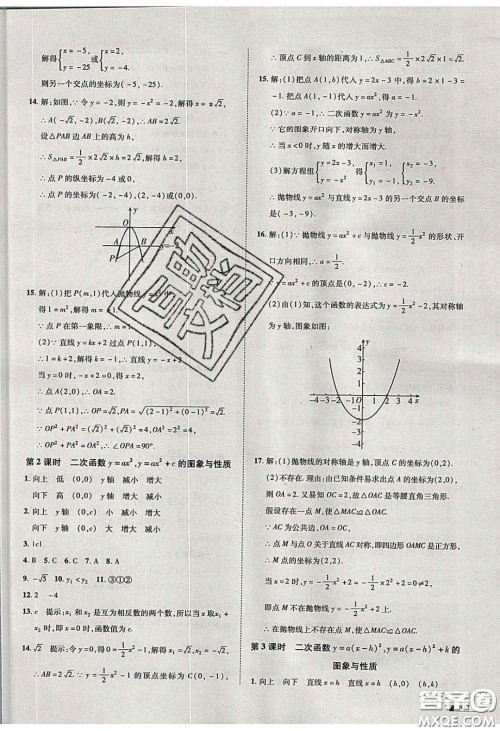 解得{x=-5, y=-25 或{x=2, 
则另一个交点的坐标为(-5,-25).
14.解:如图,∵令y=-2,则y=-x²=-2,解得x=±√2.
∴A(-√2,-2),B(√2,-2),∴AB=2√2.
设△PAB边AB上的高为h,
∴S△PAB=1/2×2√2×h=2√2,解得h=2.
∴点P的纵坐标为-4或0,
∴点P的坐标为(-2,-4)或(2,-4)或(0,0).
15.解:(1)把P(m,1)代入抛物线
得1=m²,解得
∵点P在第一象限,
把P(1,1)代入y=kx+2
∴1=k+2,解得k=-1.
当y=0时,-x+2=0,解得x=2,
∴点A(2,0),∴OA=2.
∵点P(1,1),∴OP=√2,PA=√((2-1)²+(0-1)²)=√2.
∴OP²+PA²=OA²,∴∠OPA=90°.
第2课时 二次函数y=ax²,y=ax²+c的图象与性质
1.向上 低 (0,0) y轴 减小 增大
向下 高 (0,0) y轴 增大 减小
2.向上 y轴 (0,c) 小 减小 增大
向下 y轴 (0,c) 大 增大 减小
3.|c|
4.B 5.C 6.C 7.A 8.A
9.-√5 10.y₁<y₂ 11.③①②
12.2 -4
13.c 提示:x₁和x₂是互为相反数的两个数,所以当x取x₁+x₂时,即x=0时,函数值为c.
14.√2 提示:令0=1/2x²-1,解得x₁=√2,x₂=-√2,
∴AB=2√2.当x=0时,y=1/2x²-1=-1,
∴顶点C到x轴的距离为1,∴S△ABC=1/2×2√2×1=√2.
15.解:(1)把点A(1,b)代入y=2x-3中,得b=2×1-3=-1,
把点A(1,-1)代入y=ax²中,得a=-1.
(2)∵a=-1,∴二次函数的表达式为y=-x².
∴它的图象开口向下,对称轴为y轴,
∴当x<0时,y随x的增大而增大.
(3)解方程组{y=2x-3, y=-x², 得{x₁=1, y₁=-1, {x₂=-3, y₂=-9.
∴抛物线y=ax²与直线y=2x-3的另一个交点B的坐标是(-3,-9).
16.解:(1)∵抛物线y=ax²+c与抛物线y=1/2x²的形状、开口方向相同,
(2)由(1)知,这个函数的表达式为y=1/2x²-2,其对称轴为y轴,图象如图:
17.解:(1)抛物线的对称轴是y轴,顶点C的坐标为(0,2).
(2)不存在.理由:由已知条件易求出点A的坐标为(2,0),
即OA=2.又OC=2,故△OAC是等腰直角三角形.
假设存在一点M,使△MAC≌△OAC,
∵AC为公共边,OA=OC,
∴点M与点O关于直线AC对称,即四边形OAMC是正方形,
∴M点的坐标为(2,2).
当x=2时,y=-1/2x²+2=-1/2×2²+2=0≠2.
即点M不在抛物线y=-1/2x²+2上,
∴在抛物线上不存在一点M,使△MAC≌△OAC.
第3课时 二次函数y=a(x-h)²,y=a(x-h)²+k的
图象与性质
1.向上 向下 直线x=h 直线x=h (h,0) (h,k)
答案圈
MXQE.COM